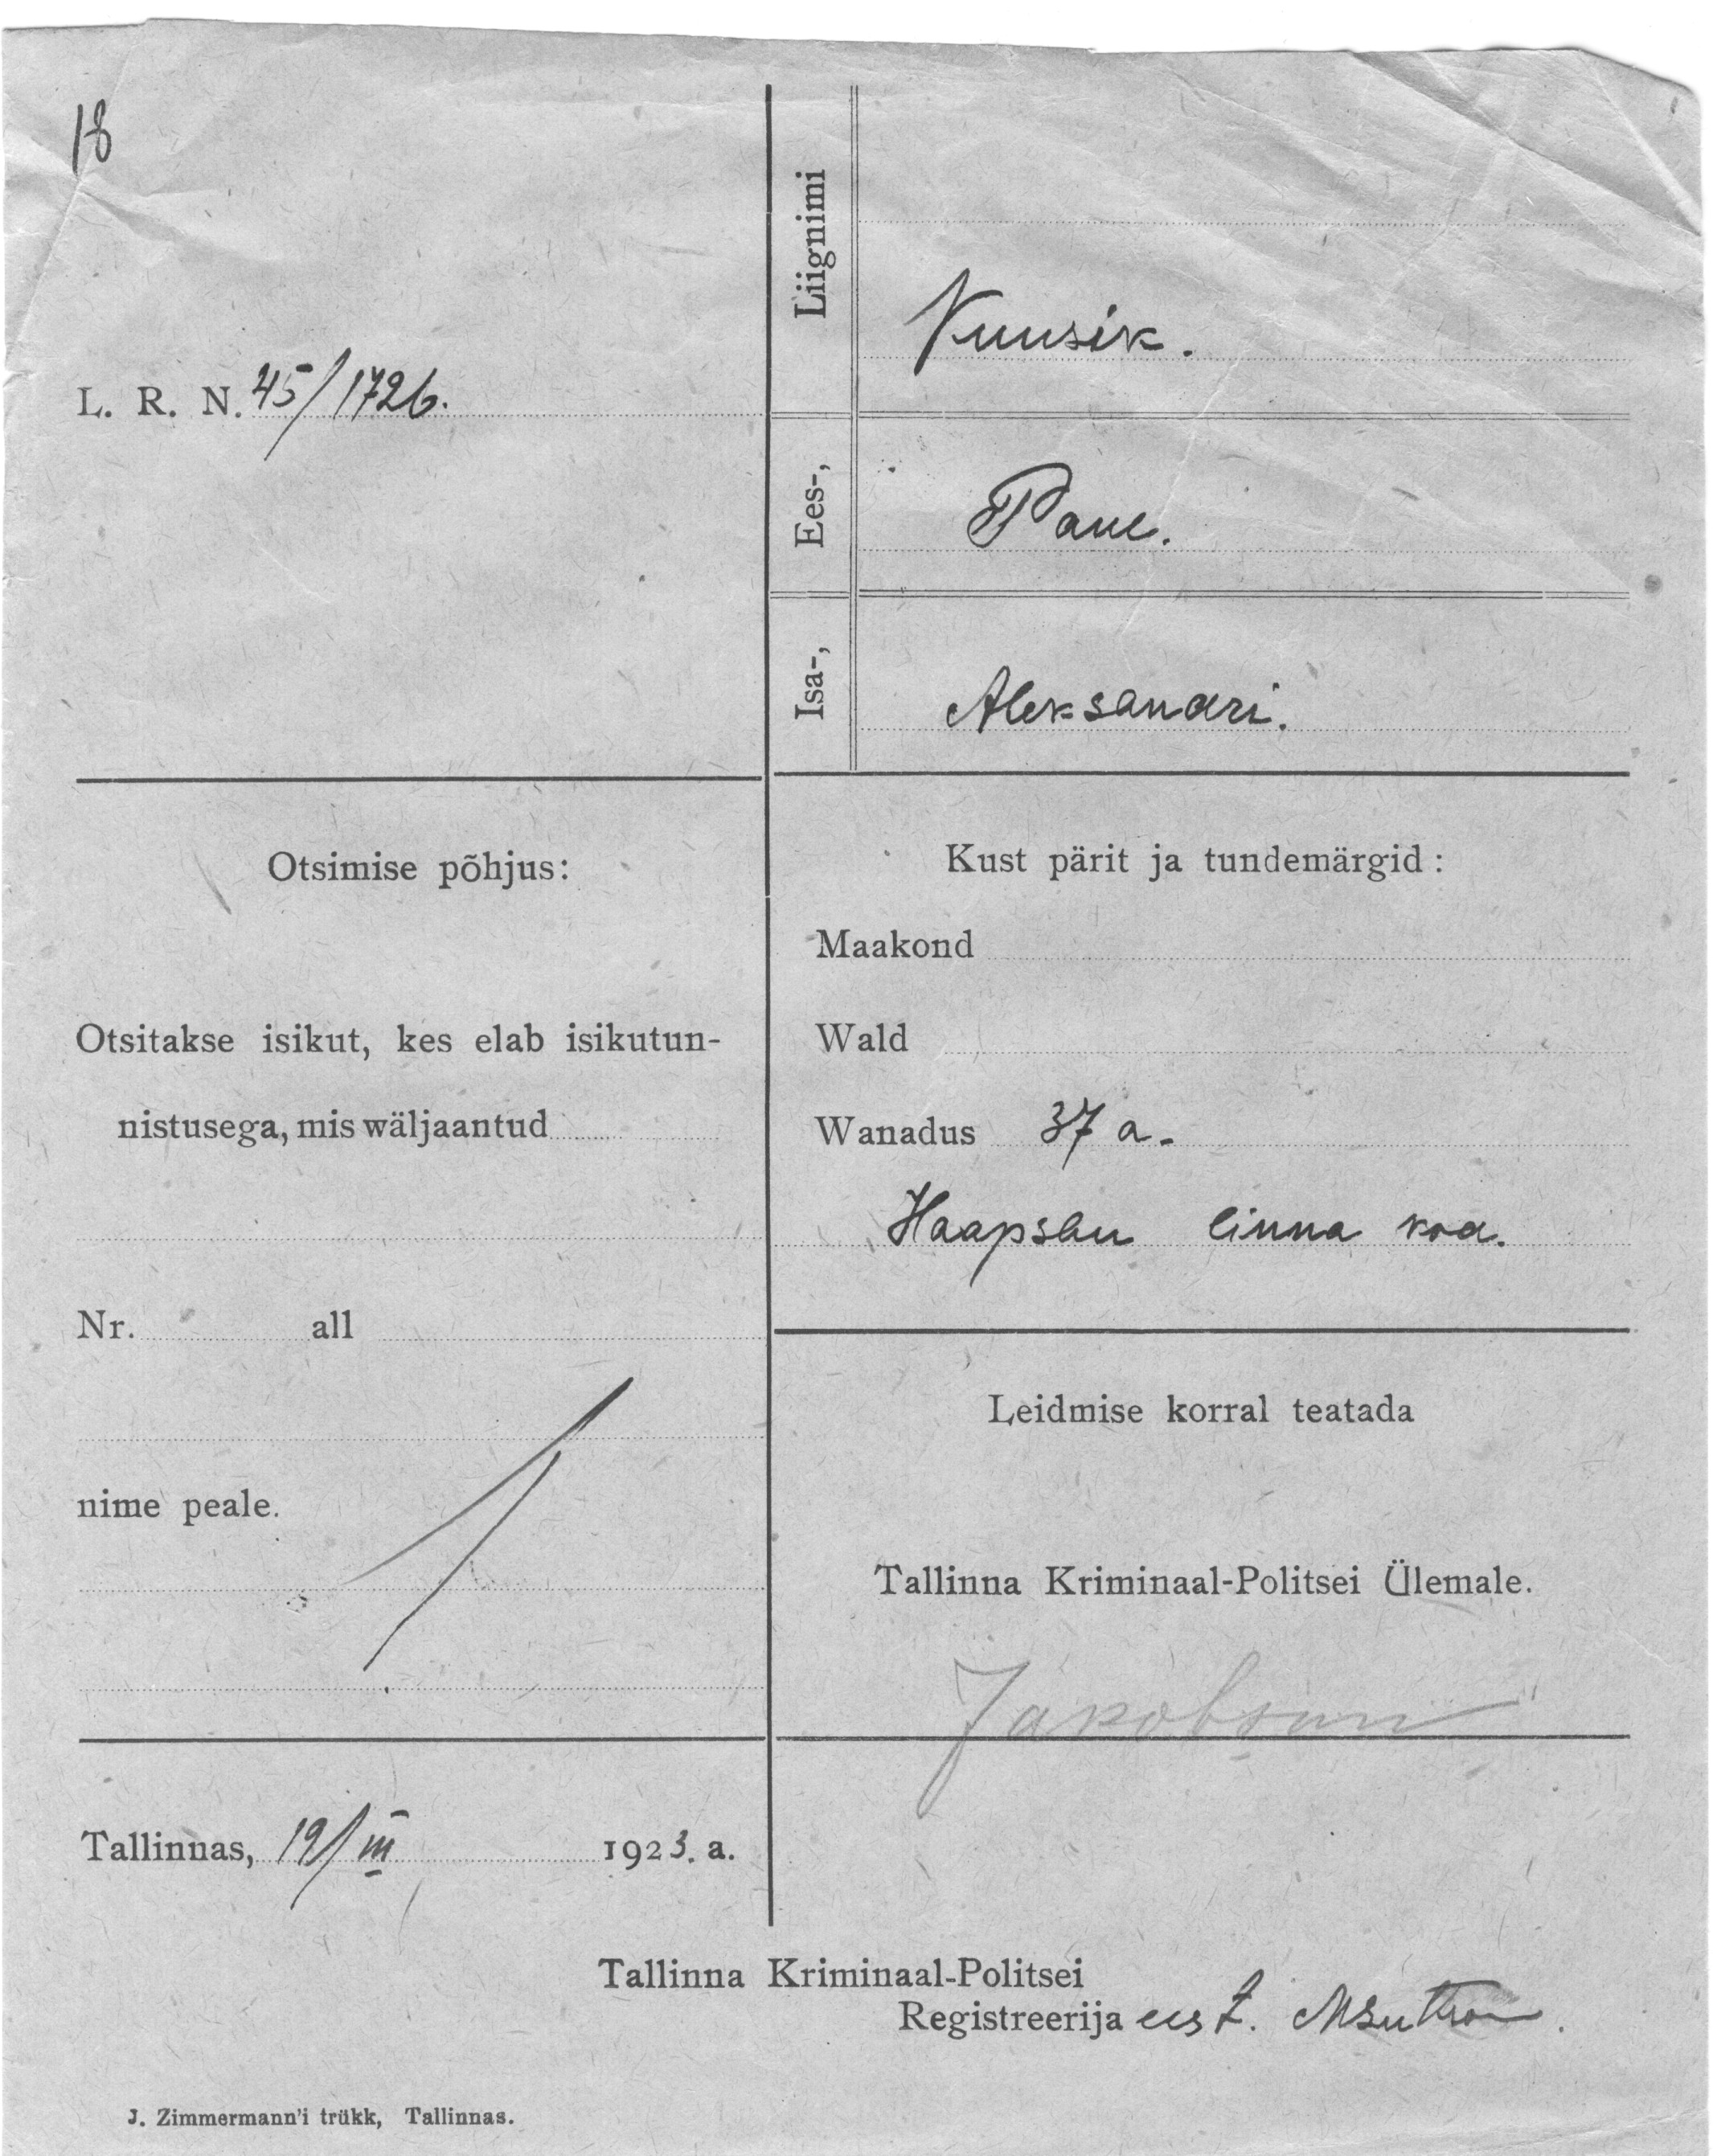 18
L. R. N. 45/1726.
Liignimi
Kuusik.
Ees-,
Paul.
Isa-,
Aleksandri.
Otsimise põhjus:
Otsitakse isikut, kes elab isikutun-
nistusega, mis wäljaantud
Nr. all
nime peale.
Kust pärit ja tundemärgid:
Maakond
Wald
Wanadus 37 a.
Haapsalu linna kod.
Leidmise korral teatada
Tallinna Kriminaal-Politsei Ülemale.
Jakobson
Tallinnas, 19/III 1923. a.
Tallinna Kriminaal-Politsei
Registreerija eest.
J. Zimmermann'i trükk, Tallinnas.